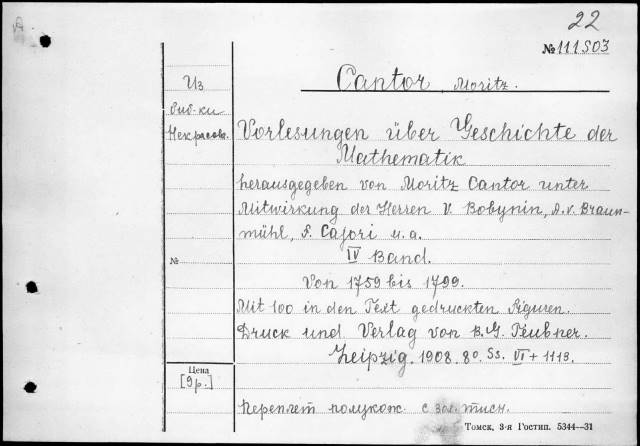 22
№ 111503
Из
биб-ки
Некрасова.
Cantor, Moritz.
Vorlesungen über Geschichte der
Mathematik
herausgegeben von Moritz Cantor unter
Mitwirkung der Herren V. Bobynin, A. v. Braun-
mühl, F. Cajori u. a.
IV Band.
№
Von 1759 bis 1799.
Mit 100 in den Text gedruckten Figuren.
Druck und Verlag von B. G. Teubner.
Leipzig. 1908. 8º. SS. VI + 1113.
Цена
[9 р.]
Переплет полукож. с зол. тисн.
Томск, 3-я Гостип. 5344—31